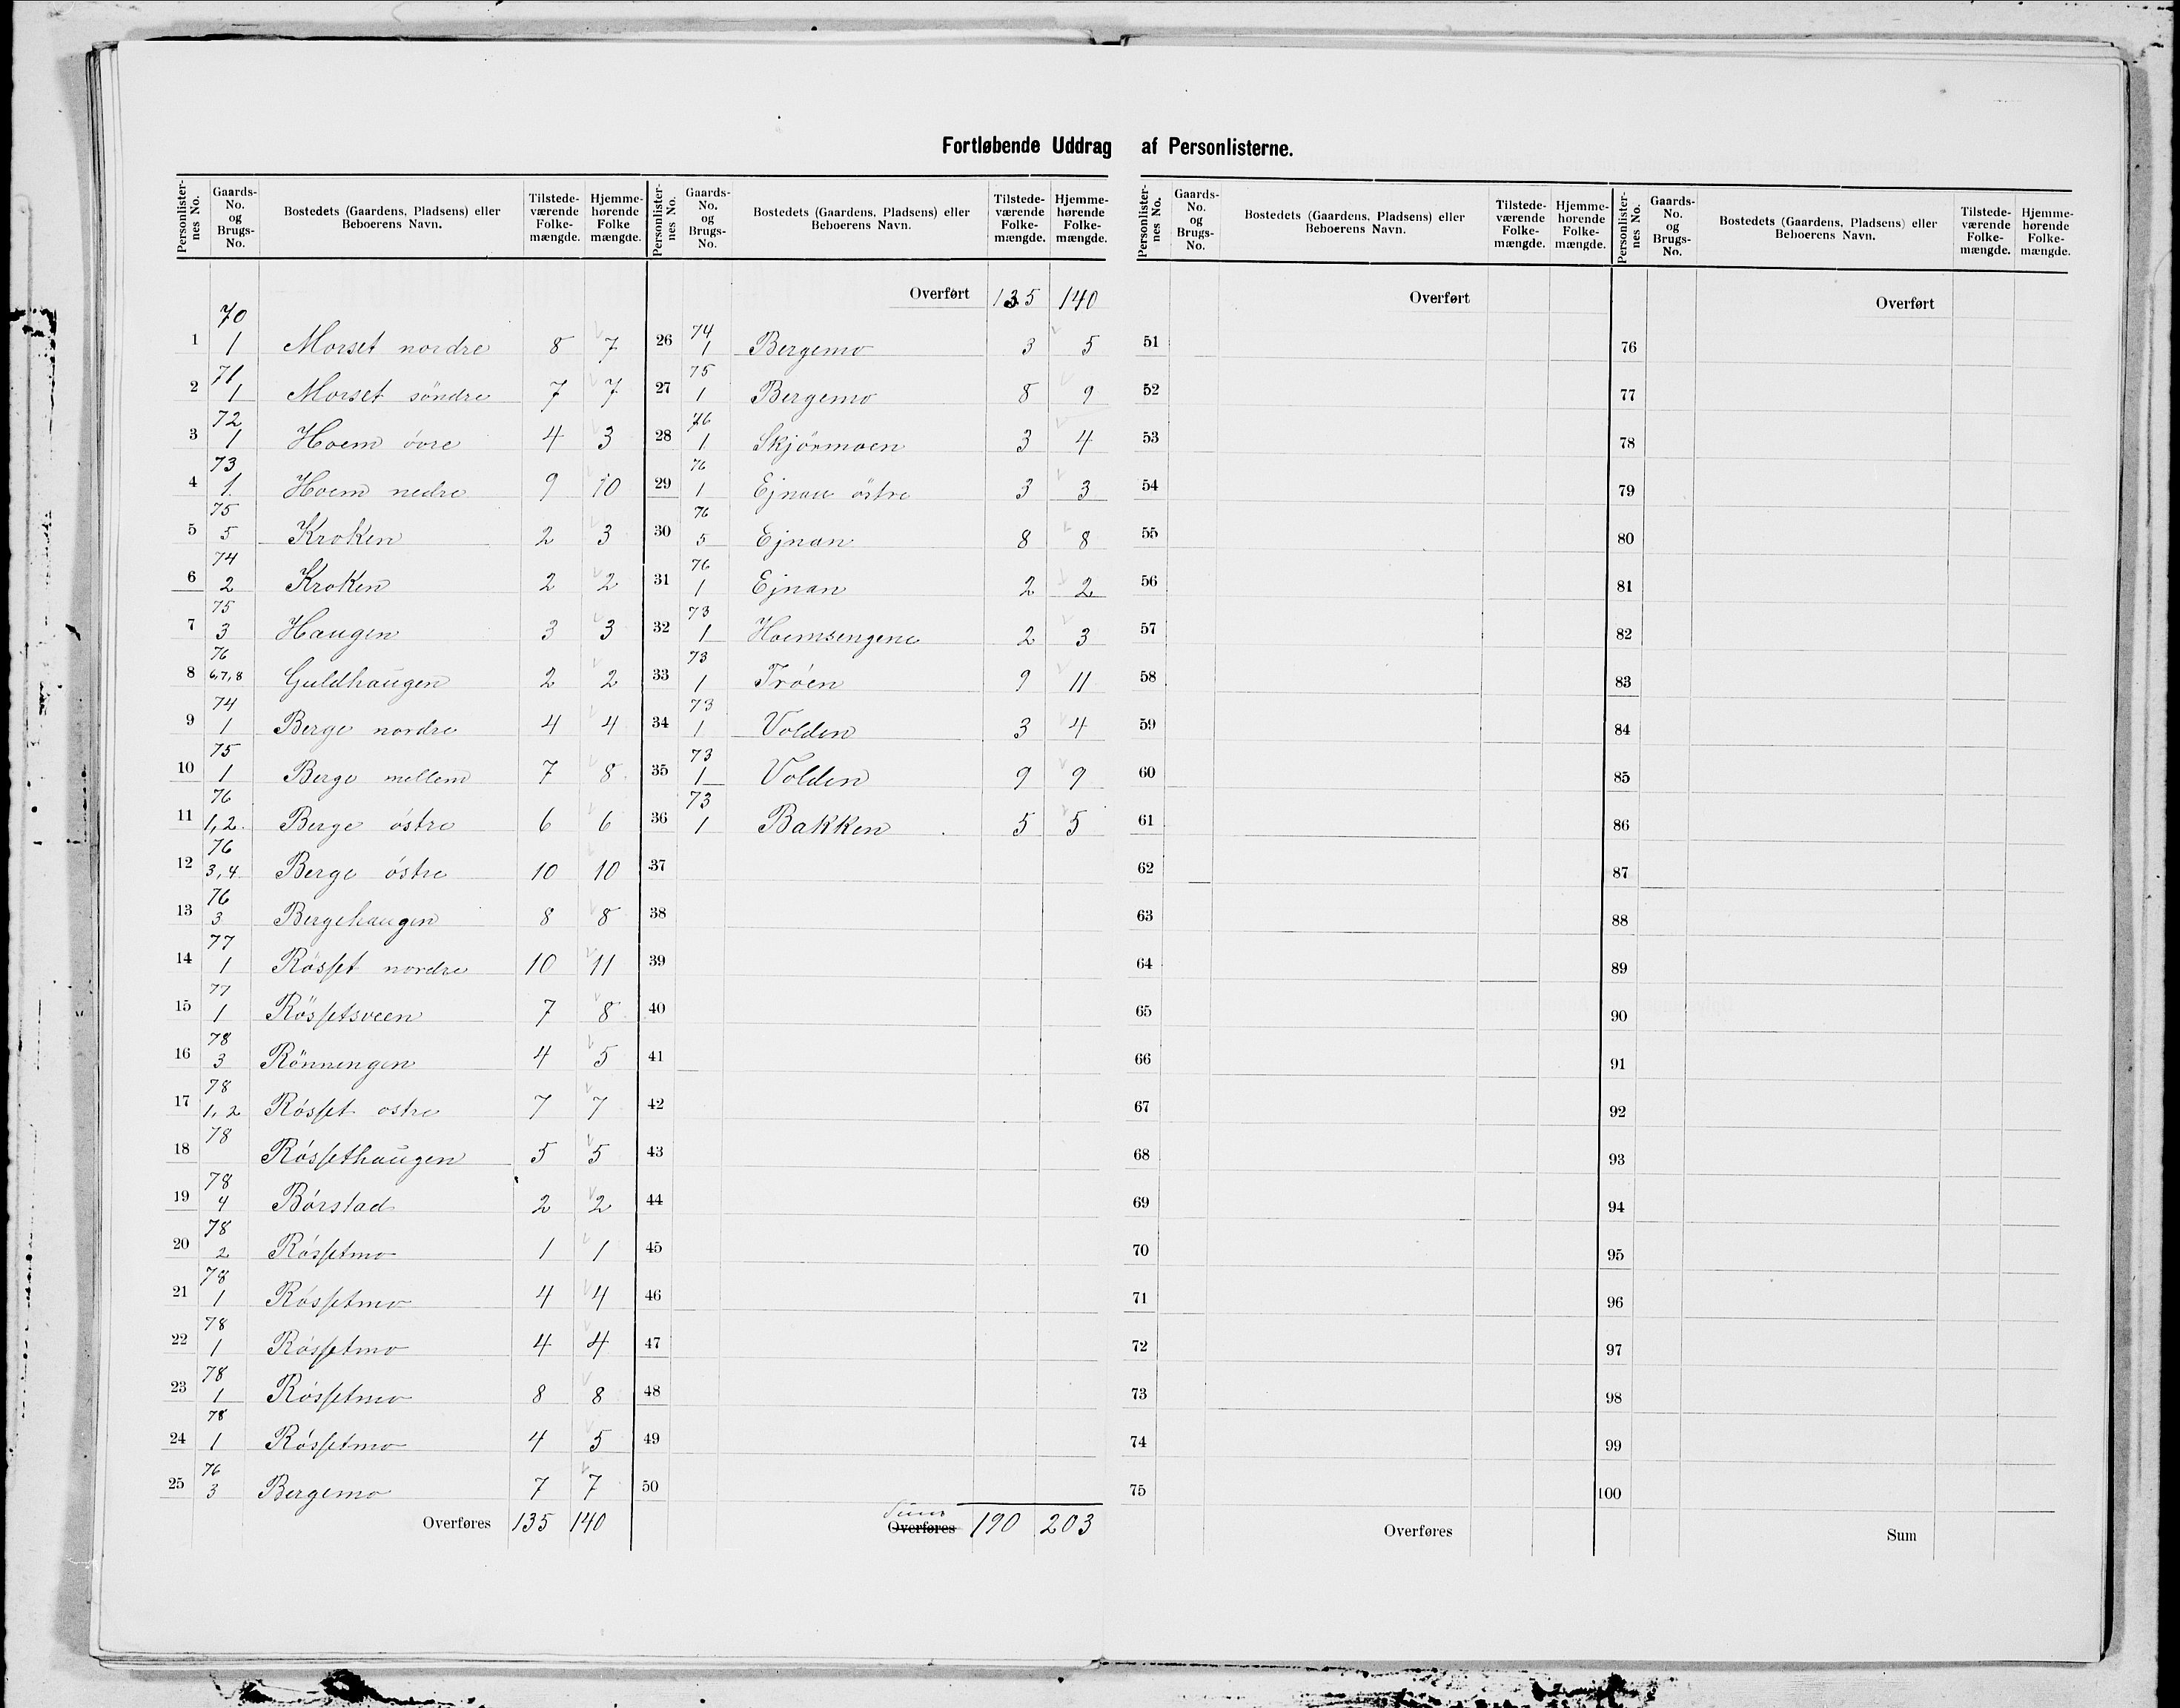 Fortløbende Uddrag af Personlisterne.
Personlister-nes No. | Gaards-No. og Brugs-No. | Bostedets (Gaardens, Pladsens) eller Beboerens Navn. | Tilstede-værende Folke-mængde. | Hjemme-hørende Folke mængde.
1 | 70 1 | Morset nordre | 8 | 7
2 | 71 1 | Morset söndre | 7 | 7
3 | 72 1 | Hoem övre | 4 | 3
4 | 73 1. | Hoem nedre | 9 | 10
5 | 75 5 | Kroken | 2 | 3
6 | 74 2 | Kroken | 2 | 2
7 | 75 3 | Haugen | 3 | 3
8 | 76 6,7,8 | Guldhaugen | 2 | 2
9 | 74 1 | Berge nordre | 4 | 4
10 | 75 1 | Berge mellem | 7 | 8
11 | 76 1,2. | Berge östre | 6 | 6
12 | 76 3,4. | Berge östre | 10 | 10
13 | 76 3 | Bergehaugen | 8 | 8
14 | 77 1 | Rösset nordre | 10 | 11
15 | 77 1 | Rössetsveen | 7 | 8
16 | 78 3 | Rönningen | 4 | 5
17 | 78 1,2 | Rösset ostre | 7 | 7
18 | 78 | Rössethaugen | 5 | 5
19 | 78 4 | Börstad | 2 | 2
20 | 78 2 | Rössetmo | 1 | 1
21 | 78 1 | Rössetmo | 4 | 4
22 | 78 1 | Rössetmo | 4 | 4
23 | 78 1 | Rössetmo | 8 | 8
24 | 78 1 | Rössetmo | 4 | 5
25 | 76 3 | Bergemo | 7 | 7
Overføres | 135 | 140
Personlister-nes No. | Gaards-No. og Brugs-No. | Bostedets (Gaardens, Pladsens) eller Beboerens Navn. | Tilstede-værende Folke-mængde. | Hjemme-hørende Folke-mængde.
Overført | 135 | 140
26 | 74 1 | Bergemo | 3 | 5
27 | 75 1 | Bergemo | 8 | 9
28 | 76 1. | Skjörmoen | 3 | 4
29 | 76 1 | Ejnan östre | 3 | 3
30 | 76 5 | Ejnan | 8 | 8
31 | 76 1 | Ejnan | 2 | 2
32 | 73 1 | Hoemsengene | 2 | 3
33 | 73 1 | Tröen | 9 | 11
34 | 73 1 | Volden | 3 | 4
35 | 73 1 | Volden | 9 | 9
36 | 73 1 | Bakken | 5 | 5
37
38
39
40
41
42
43
44
45
46
47
48
49
50
Sum
Overføres | 190 | 203
Personlister-nes No. | Gaards-No. og Brugs-No. | Bostedets (Gaardens, Pladsens) eller Beboerens Navn. | Tilstede-værende Folke-mængde. | Hjemme-hørende Folke-mængde.
Overført
51
52
53
54
55
56
57
58
59
60
61
62
63
64
65
66
67
68
69
70
71
72
73
74
75
Overføres
Personlister-nes No. | Gaards-No. og Brugs-No. | Bostedets (Gaardens, Pladsens) eller Beboerens Navn. | Tilstede-værende Folke-mængde. | Hjemme-hørende Folke-mængde.
Overført
76
77
78
79
80
81
82
83
84
85
86
87
88
89
90
91
92
93
94
95
96
97
98
99
100
Sum